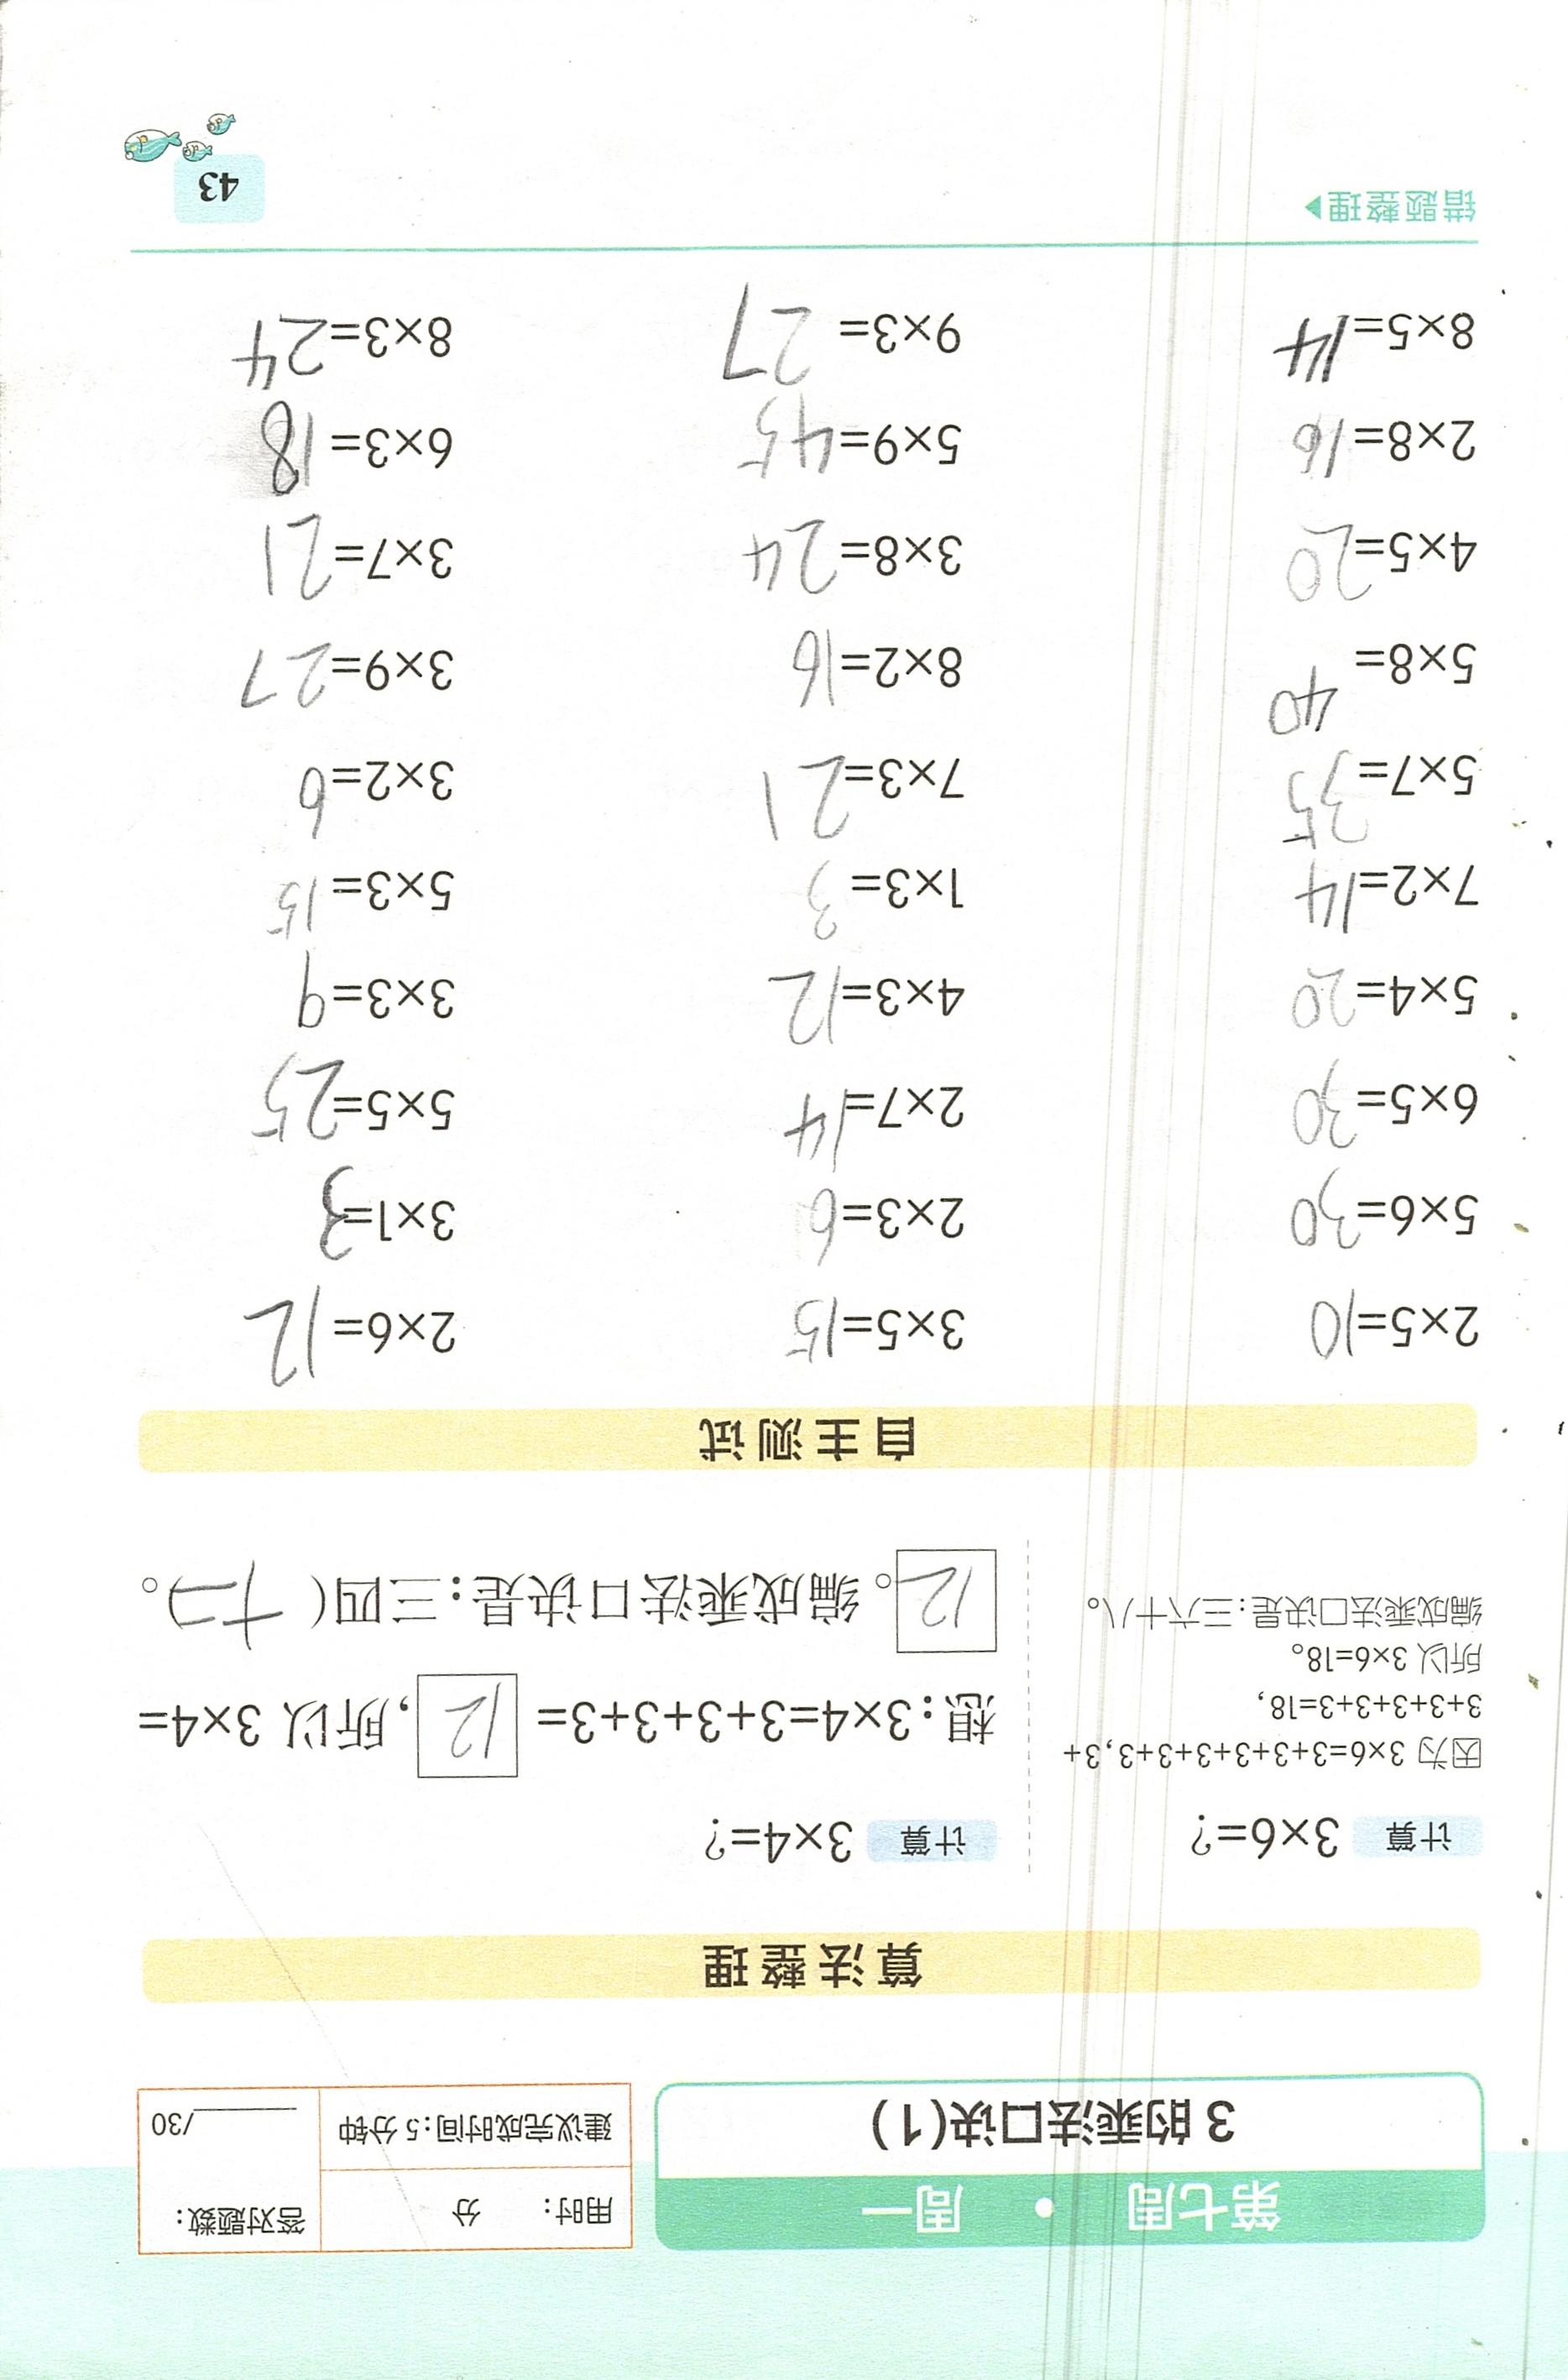 第七周 · 周一
3的乘法口诀(1)
用时： 分
建议完成时间：5分钟
答对题数：
____/30
算法整理
计算 3×6=?
因为 3×6=3+3+3+3+3+3,3+
3+3+3+3+3=18,
所以 3×6=18。
编成乘法口诀是：三六十八。
计算 3×4=?
想：3×4=3+3+3+3= 12 ,所以 3×4=
12 。编成乘法口诀是：三四（十二）。
自主测试
2×5=10 3×5=15 2×6=12
5×6=30 2×3=6 3×1=3
6×5=30 2×7=14 5×5=25
5×4=20 4×3=12 3×3=9
7×2=14 1×3=3 5×3=15
5×7=35 7×3=21 3×2=6
5×8=40 8×2=16 3×9=27
4×5=20 3×8=24 3×7=21
2×8=16 5×9=45 6×3=18
8×5=14 9×3=27 8×3=24
错题整理▶
43